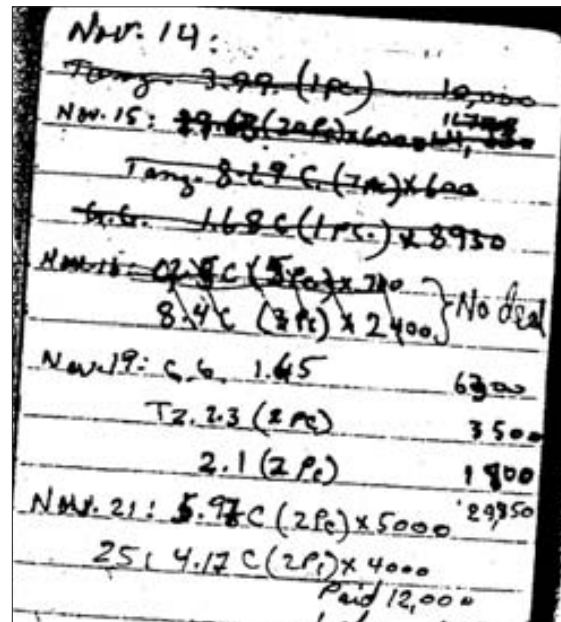 Nov. 14:
Tanz. 3.99. (1pc.) 10,000
Nov. 15: (20Pc)x600
Tanz. 8.29 C. (7pc)x600
G.G. 1.68 C (1 PC.) x 8950
Nov. 18: C (5Pc) x 700
8.4 C (3 Pc) x 2400 } No deal
Nov. 19: G.G. 1.65 6300
TZ. 2.3 (2 Pc) 3500
2.1 (2 Pc) 1800
Nov. 21: 5.97 C (2Pc) x 5000 29,850
25: 4.17 C (2Pc) x 4000
Paid 12,000